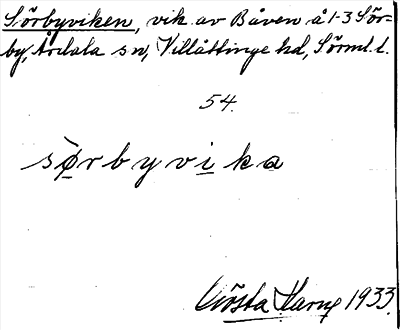 Sörbyviken, vik av Båven å 1-3 Sör-
by, Årdala sn, Villåttinge hd, Sörml. l.
54.
sø̀rbyvika
Gösta Karup 1933.